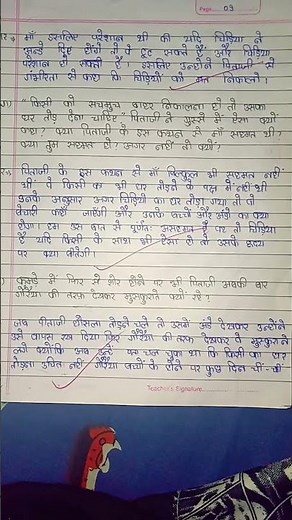 Page.... 03
माँ इसलिए परेशान थी की यदि चिड़िया ने
अन्डे दिए होंगे तो वे टूट सकते हैं और चिड़िया
परेशान हो सकती हैं। इसलिए उन्होंने पिताजी से
गंभीरता से कहा कि चिड़ियों को मत निकालो।
"किसी को सचमुच बाहर निकालना हो तो उसका
घर तोड़ देना चाहिए" पिताजी ने गुस्से में ऐसा क्यों
कहा? क्या पिताजी के इस कथन से माँ सहमत थी?
क्या तुम सहमत हो? अगर नहीं तो क्यों?
पिताजी के इस कथन से माँ बिल्कुल भी सहमत नहीं
थीं वे किसी का भी घर तोड़ने के पक्ष में नहीं थी
उनके अनुसार अगर चिड़ियों का घर तोड़ा गया तो वे
बेचारी कहाँ जाएंगी और उनके बच्चों और अंडों का क्या
होगा। हम इस बात से पूर्णतः असहमत हैं घर तो चिड़िया
हैं यदि किसी के साथ भी ऐसा हो तो उसके हृदय
पर क्या बीतेगी।
कमरे में फिर से शोर होने पर भी पिताजी अबकी बार
गौरैया की तरफ देखकर मुस्कुराते क्यों रहे?
जब पीताजी घोंसला तोड़ने चले तो उसमें अंडे देखकर उन्होंने
उसे वापस रख दिया फिर गौरैयाँ की तरफ देखकर वे मुस्कुराने
लगे क्योंकि अब उन्हें पता चल चुका था कि किसी का घर
तोड़ना उचित नहीं गौरैया बच्चों के होने पर कुछ दिन चीं-चीं
Teacher's Signature